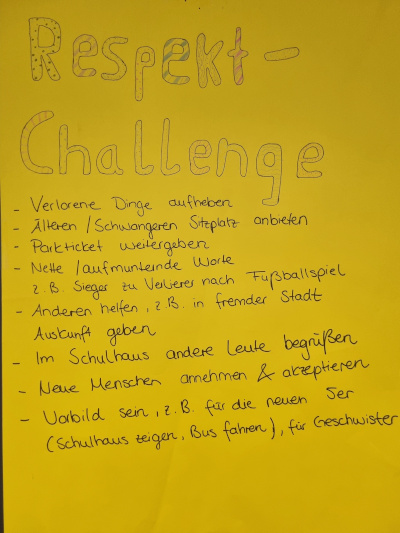 Respekt-
Challenge
- Verlorene Dinge aufheben
- Älteren / Schwangeren Sitzplatz anbieten
- Parkticket weitergeben
- Nette / aufmunternde Worte
z.B. Sieger zu Verlierer nach Fußballspiel
- Anderen helfen, z.B. in fremder Stadt
Auskunft geben
- Im Schulhaus andere Leute begrüßen
- Neue Menschen annehmen & akzeptieren
- Vorbild sein, z.B. für die neuen 5er
(Schulhaus zeigen, Bus fahren), für Geschwister